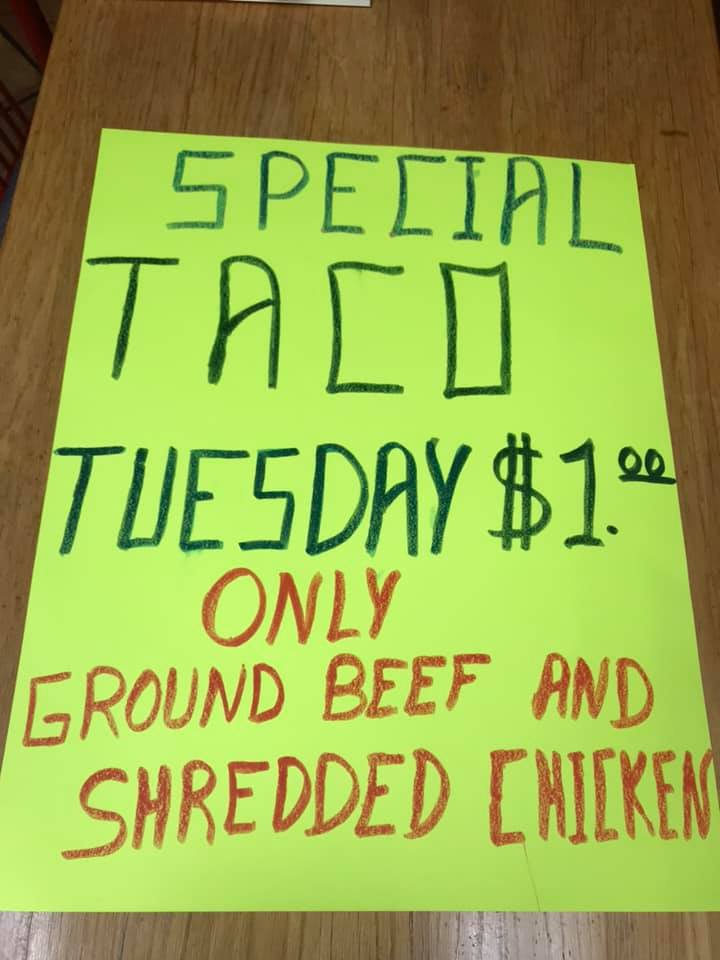 SPECIAL
TACO
TUESDAY $1.00
ONLY
GROUND BEEF AND
SHREDDED CHICKEN